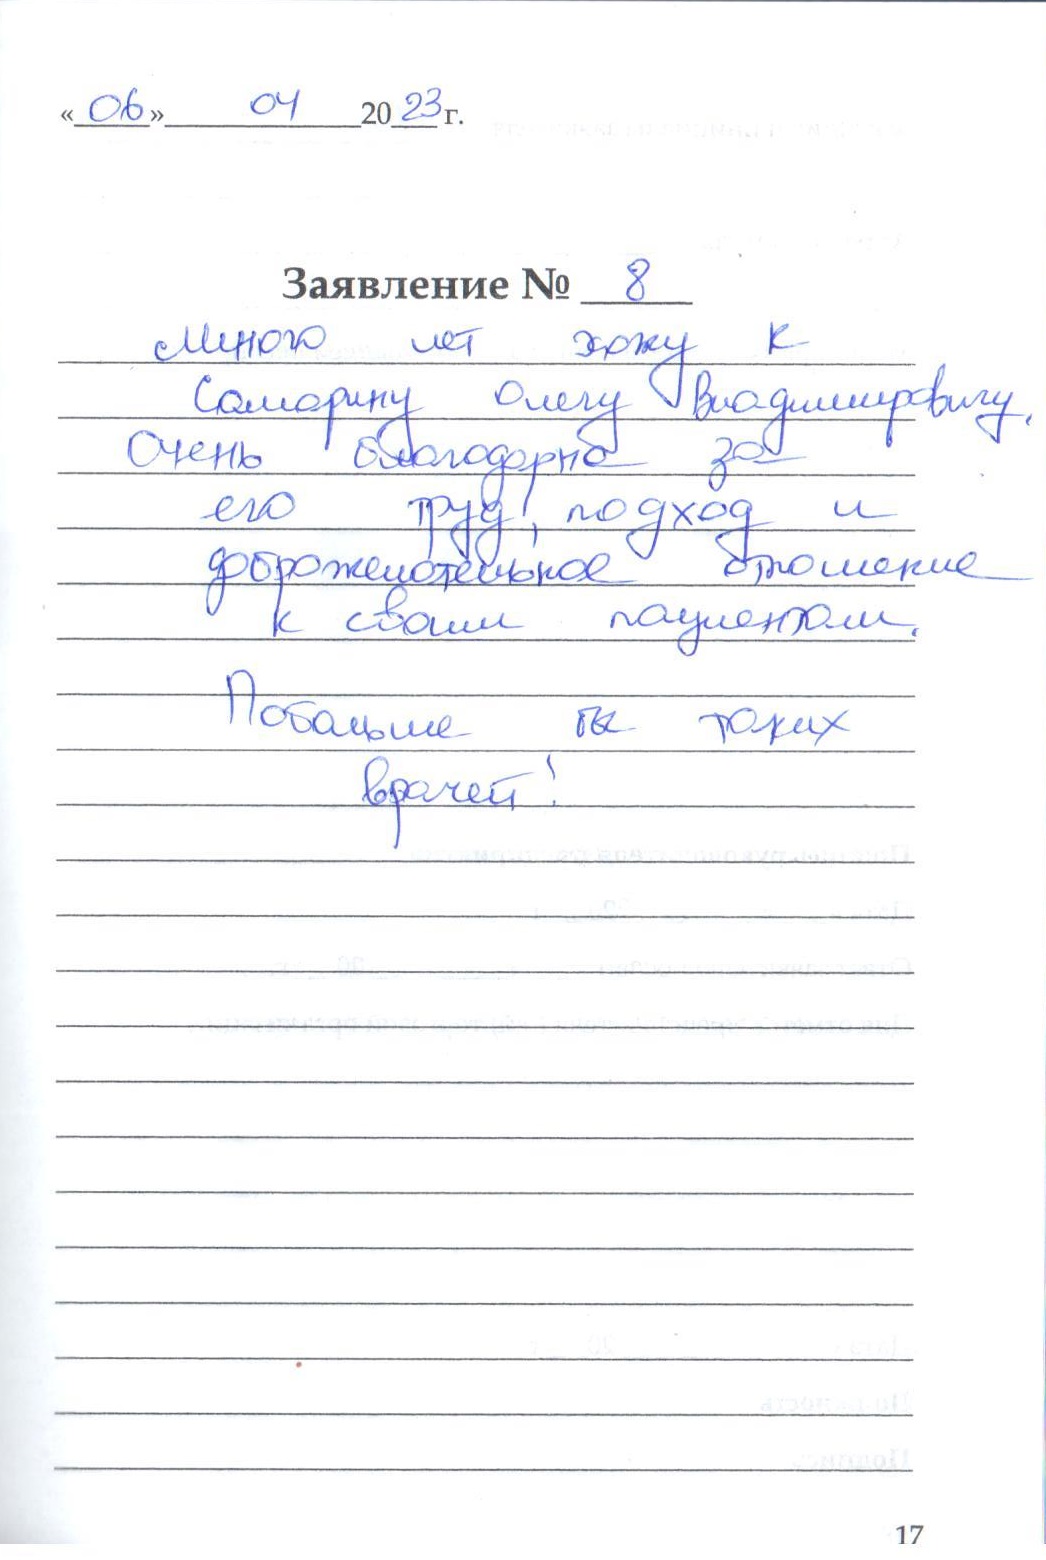 «06» 04 2023 г.
Заявление № 8
Много лет хожу к
Самарину Олегу Владимировичу.
Очень благодарна за
его труд, подход и
доброжелательное отношение
к своим пациентам.
Побольше бы таких
врачей!
17